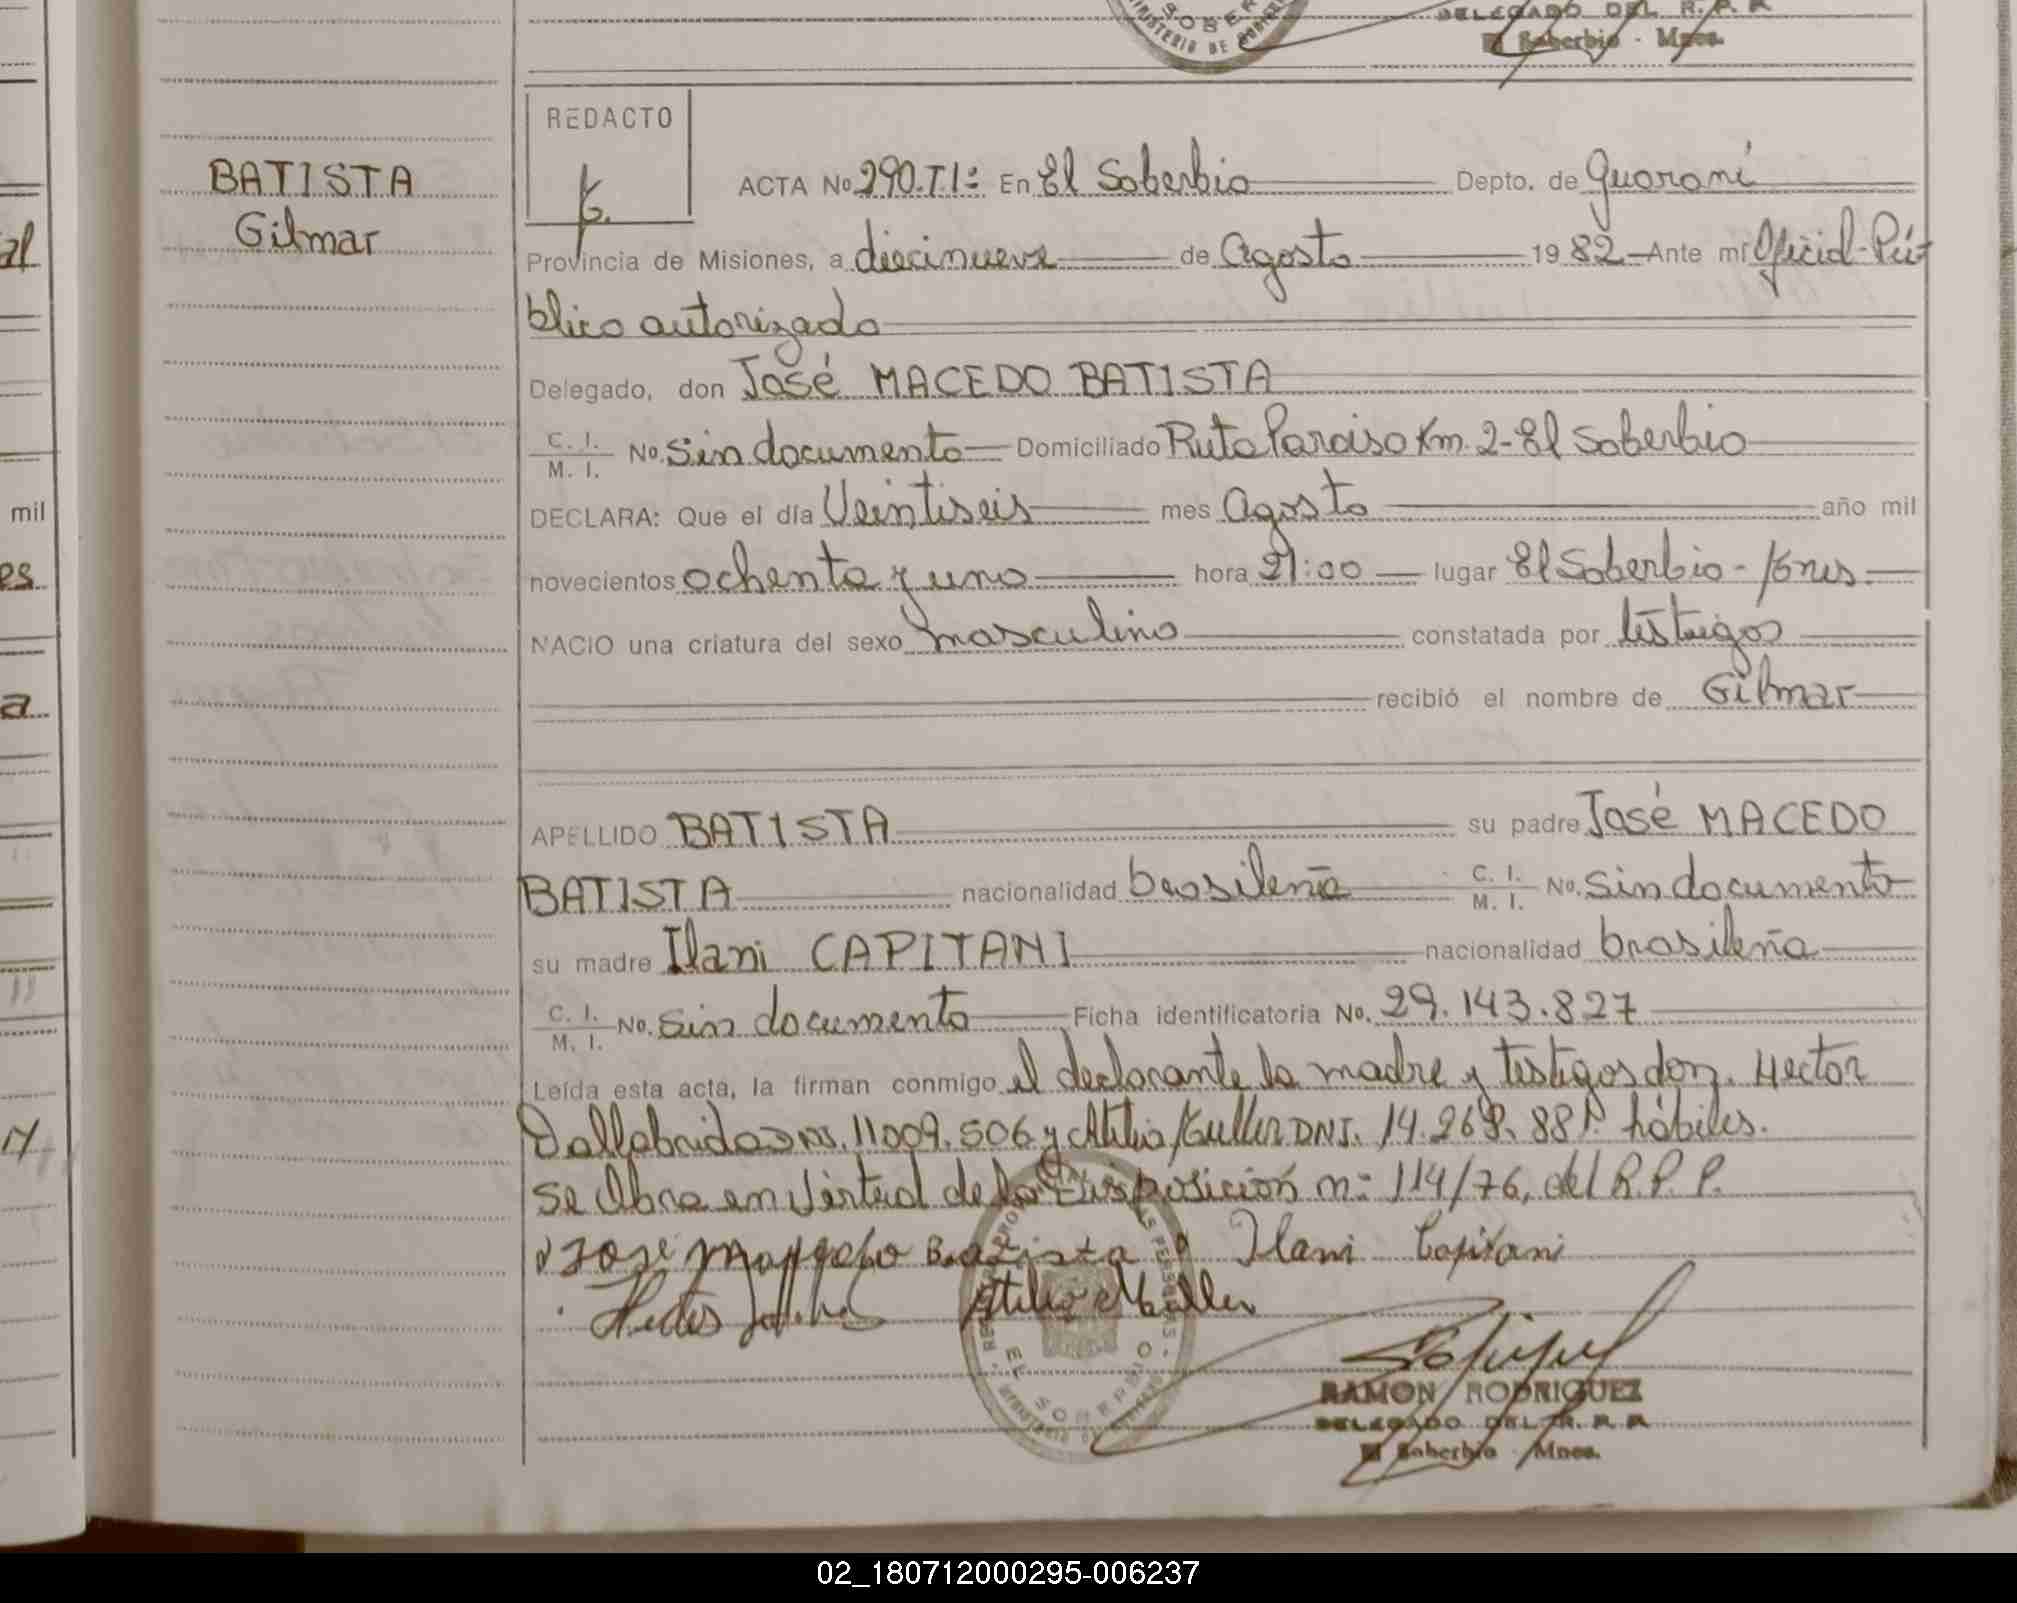 DELEGADO DEL R. P. P.
El Soberbio - Mnes.
REDACTO
BATISTA
Gilmar
ACTA No 290.TI: En El Soberbio Depto. de Guaraní
Provincia de Misiones, a diecinueve de Agosto 1982 Ante mí Oficial Pú-
blico autorizado
Delegado, don José MACEDO BATISTA
C. I. M. I. No. Sin documento Domiciliado Ruta Paraiso Km. 2 - El Soberbio
DECLARA: Que el día Veintiseis mes Agosto año mil
novecientos ochenta y uno hora 21:00 lugar El Soberbio -
NACIO una criatura del sexo masculino constatada por testigos
recibió el nombre de Gilmar
APELLIDO BATISTA su padre José MACEDO
BATISTA nacionalidad brasileña C. I. M. I. No. Sin documento
su madre Ilani CAPITANI nacionalidad brasileña
C. I. M. I. No. Sin documento Ficha identificatoria No. 29.143.827
Leída esta acta, la firman conmigo el declarante la madre y testigos don. Hector
11009.506 y Atilio DNI. 14.268.881 hábiles.
Se Obra en Virtud de la Disposición n: 114/76, del R.P.P.
José Batista Ilani Capitani
Atilio Muller
EL SOBERBIO
RAMON RODRIGUEZ
DELEGADO DEL R. P. P.
El Soberbio - Mnes.
mil
es
a
02_180712000295-006237